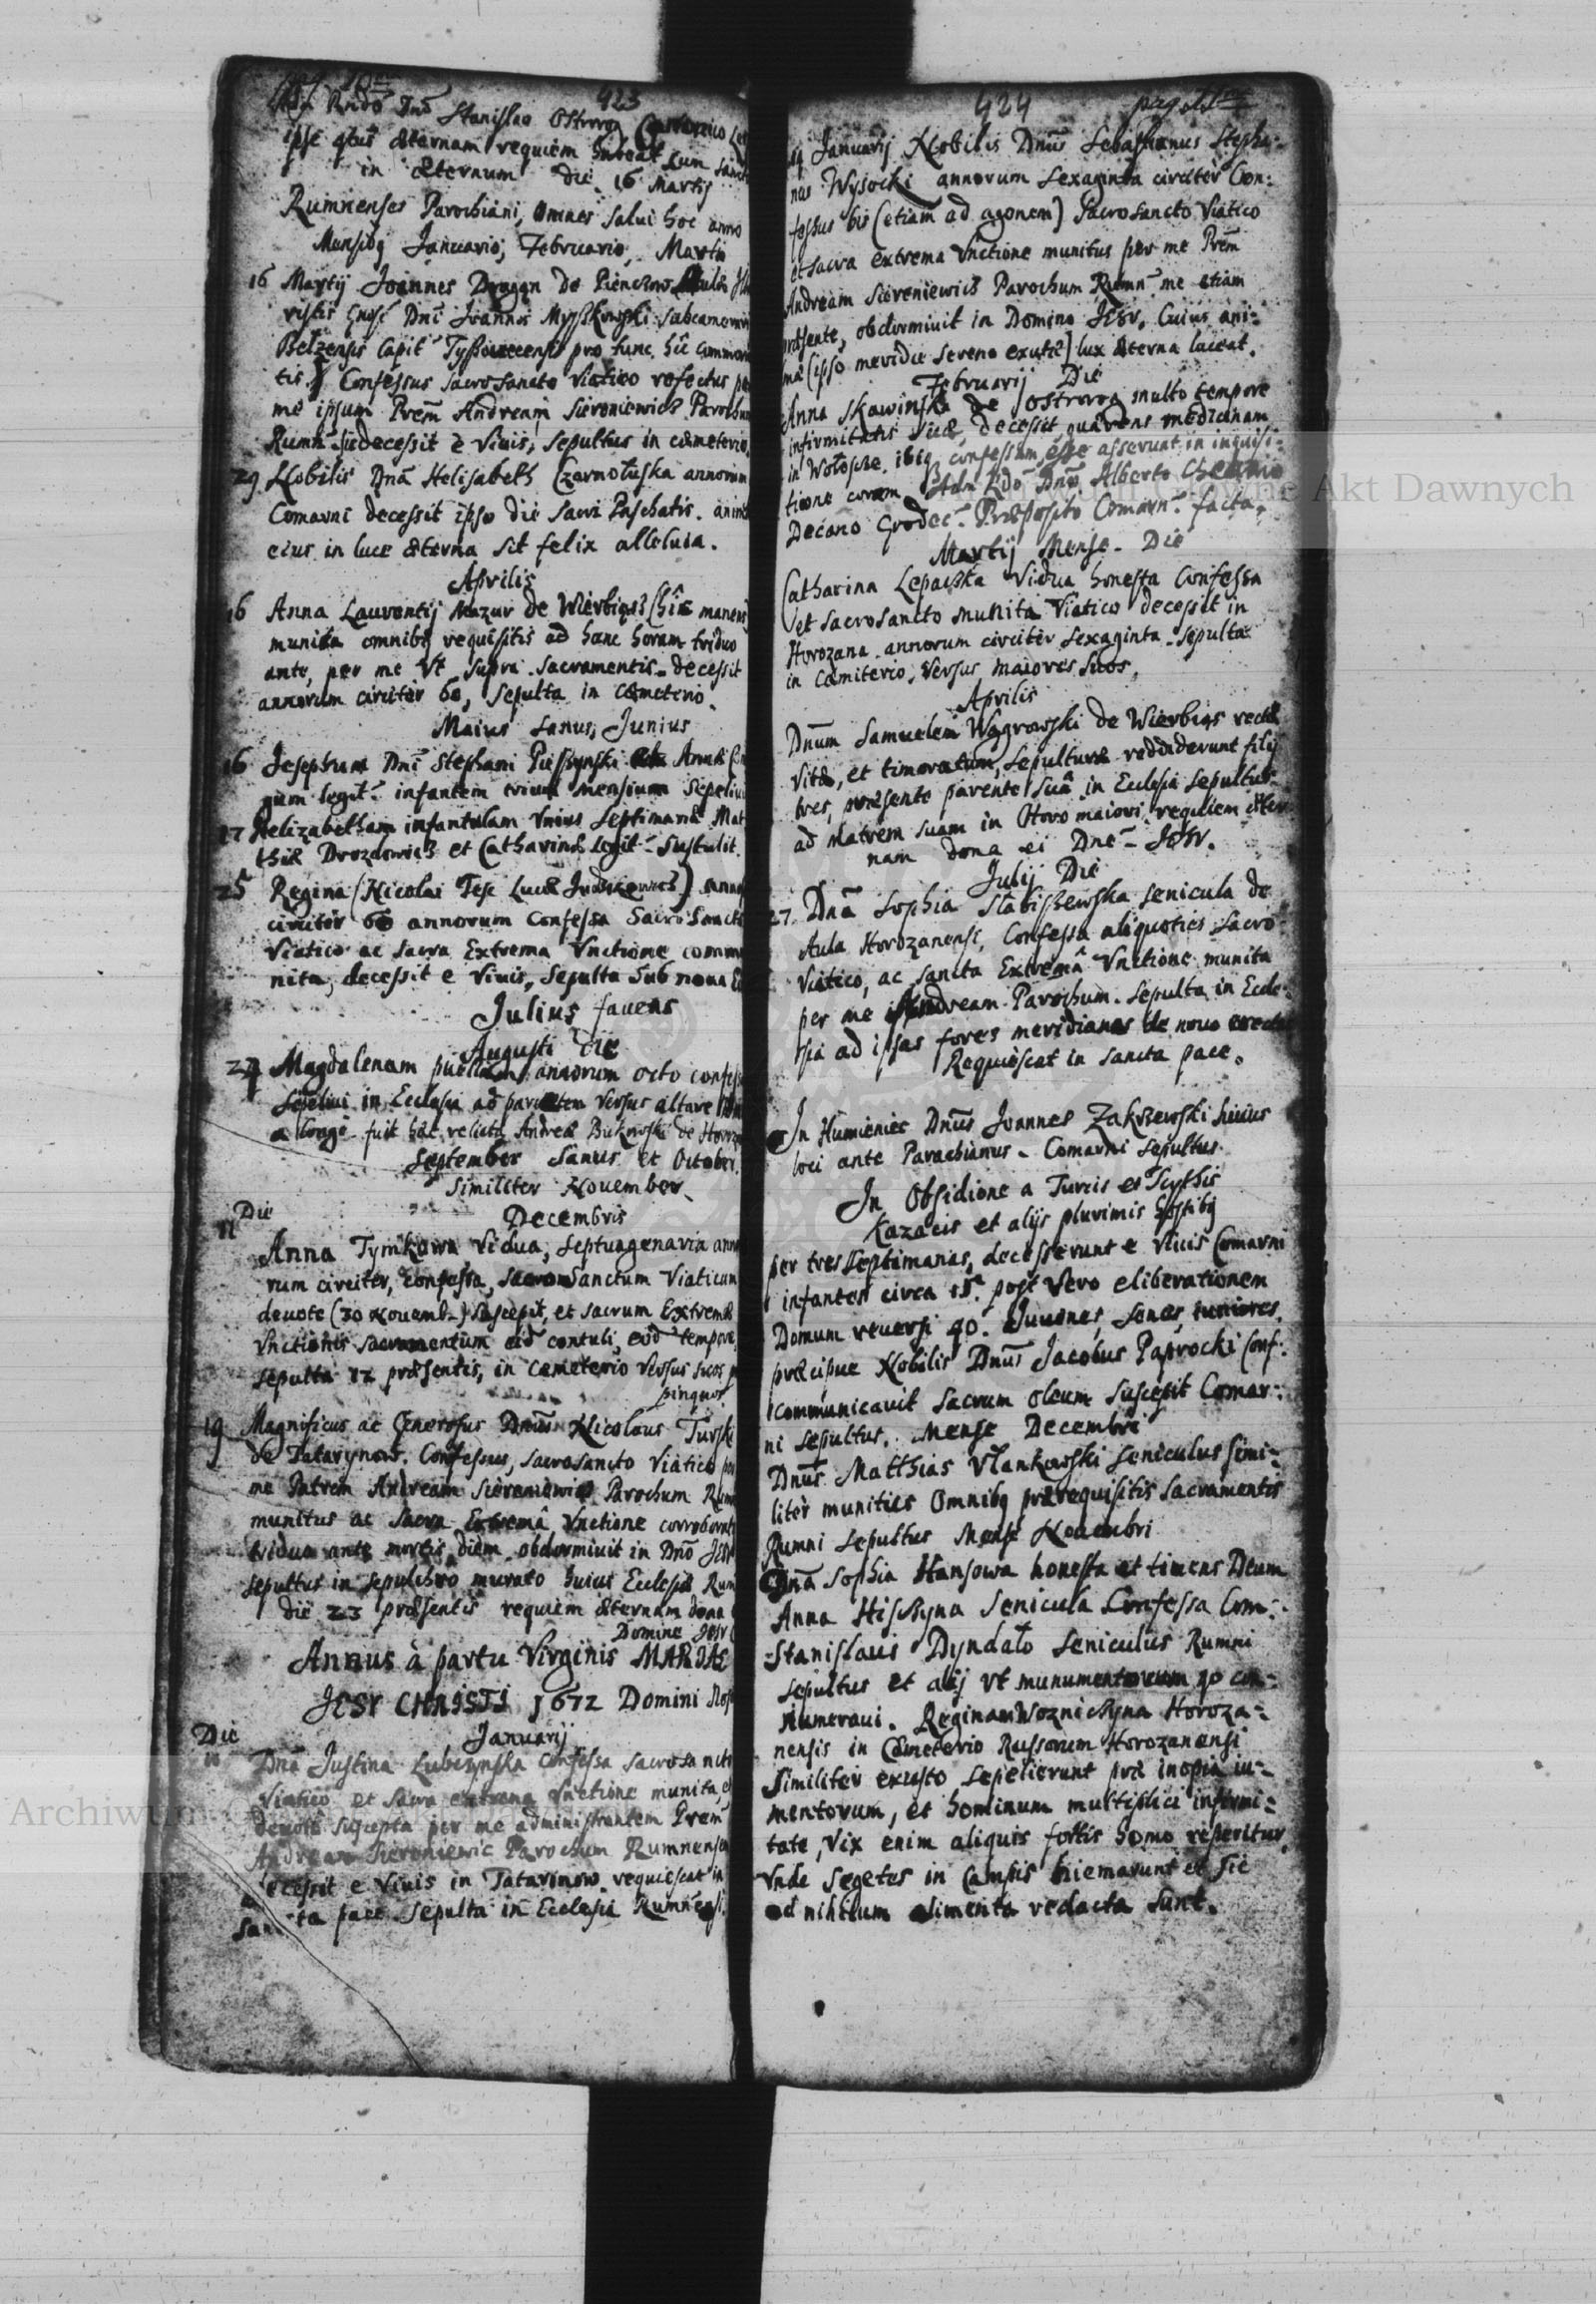 pag 10
423
Rndo Dno Stanislao Ostrorog
ipse qtus æternam requiem habeat cum sanct
in æternum die 16 Martij
Rumnenses Parochiani, Omnes salui hoc anno
Mensibq Januario, Februario, Martio
16 Martij Joannes Dragan de Pienczow
Dnī Joannis Myszkowski subcamerar
Belzensis Capit pro tunc hîc
tis. Confessus sacrosancto Viatico refectus per
me ipsum Prem̄ Andream Sieroniewicz Parochum
Rumn decessit è Viuis, sepultus in cœmeterio
29 Nobilis Dnā Helisabeth Czarnotuska annorum
Comarni decessit ipso die sacri Paschatis. anima
eius in luce æterna sit felix alleluia.
Aprilis
16 Anna Laurentij Mazur de Wierbiqs hîc manens
munita omnibq requisitis ad hanc horam triduo
ante, per me Vt supra sacramentis decessit
annorum circiter 60, sepulta in cœmeterio.
Maius sanus, Junius
16 Josephum Dnī Stephani
gum legit. infantem trium mensium sepeliui
17 Helizabetham infantulam Vnius septimanæ Mat
thiæ Drozdowicz et Catharinæ legit. sustulit.
25 Regina (Nicolai Tesc Lucæ )
circiter 60 annorum Confessa Sacrosancto
Viatico ac sacra Extrema Vnctione com̄
nita, decessit e Viuis, sepulta sub noua
Julius fauens
Augusti die
24 Magdalenam puellam annorum octo confess
sepeliui in Ecclesia ad parietem Versus altare
a longe fuit hæc relicta Andreæ Bukowski de Horoz
September sanus et October
Similiter Nouember
Die
Decembris
11 Anna Tymkowa Vidua, septuagenaria anno
rum circiter, confessa, sacrosanctum Viaticum
deuote (30 Nouemb.) suscepit, et sacrum Extremæ
Vnctionis sacramentum eid contuli, eod tempore
sepulta 12 præsentis, in Cœmeterio Versus suos
pinquos
19 Magnificus ac Generosus Dnus Nicolaus Turski
de Tatarynow. Confessus, sacrosancto Viatico per
me Patrem Andream Sieroniewicz Parochum Rum
munitus ac sacra Extremâ Vnctione corroborat
triduo ante mortis diem obdormiuit in Dnō JESV
sepultus in sepulchro murato huius Ecclesiæ Rum
die 23 præsentis requiem æternam dona
Domine JESV
Annus à partu Virginis MARIAE
JESV CHRISTI 1672 Domini Nos
Die
Januarij
Dnā Justina Lubczynska Confessa sacrosancto
Viatico et sacra extrema Vnctione munita, et
deuotè suscepta per me administrantem Prem̄
Andream Sieroniewic Parochum Rumnensem
decessit e Viuis in Tatarinow requiescat in
sancta pace sepulta in Ecclesia Rumnensi.
424
pag. 11
14 Januarij Nobilis Dnūs Sebastianus Stepha-
nus Wysocki annorum sexaginta circiter Con:
fessus bis (etiam ad agonem) Sacrosancto Viatico
et sacra extrema Vnctione munitus per me Prēm
Andream Siereniewicz Parochum Rumn. me etiam
præsente, obdormiuit in Domino JESV, Cuius ani:
mæ (ipso meridie sereno exutæ) lux æterna luceat.
Februarij Die
Anna Skawinska de Ostrorog multo tempore
infirmitatis suæ, decessit quærens medicinam
in Wołoszcze. ibiq confessam esse asserunt in inquisi-
tione coram Adm Rdo Dnō Alberto
Decano Grodec. Præposito Comarn. facta.
Martij Mense. Die
Catharina Lepaczka Vidua honesta Confessa
et sacrosancto munita Viatico decessit in
Horozana annorum circiter sexaginta. sepulta
in Cœmiterio, Versus maiores suos.
Aprilis
Dnūm Samuelem Wagrowski de Wierbiqs rectæ
Vitæ, et timoratum, sepulturæ reddiderunt filij
tres, præsente parente suâ in Ecclesia sepultus
ad matrem suam in Choro maiori, requiem æter
nam dona ei Dnē JESV.
Julij Die
27 Dnā Sophia Slabiszewska senicula de
Aula Horozanensi, Confessa aliquoties sacro
Viatico, ac sancta Extremâ Vnctione munita
per me Andream Parochum. sepulta in Eccle:
sia ad ipsas fores meridianas de nouo erectas
Requiescat in sancta pace.
In Humieniec Dnūs Joannes Zakrzewski huius
loci ante Parochianus. Comarni sepultus.
In Obsidione a Turcis et Scythis
Kazacis et alijs plurimis hostibq
per tres septimanas, decesserunt e Viuis Comarni
infantes circa 15. post Vero eliberationem
Domum reuersi 40. Iuuenes, senes, iuniores,
præcipue Nobilis Dnūs Jacobus Paprocki Conf:
communicauit sacrum oleum suscepit Comar:
ni sepultus. Mense Decembri
Dnūs Matthias Vłankowski seniculus simi:
liter munitus Omnibq prærequisitis sacramentis
Rumni sepultus Mense Nouembri
Dnā Sophia Hansowa honesta et timens Deum
Anna Hisczyna senicula Confessa Com:
Stanislaus Dyndało seniculus Rumni
sepultus et alij Vt munumentorum 40 con:
numeraui. Reginam Woznickyna Horoza:
nensis in Cœmeterio Russorum Horozanensi
similiter exusto sepelierunt præ inopia iu:
mentorum, et hominum multiplici infirmi:
tate, Vix enim aliquis fortis homo reperitur,
Vnde segetes in Campis hiemarunt et sic
ad nihilum alimenta redacta sunt.
Akt Dawnych
Archiwum